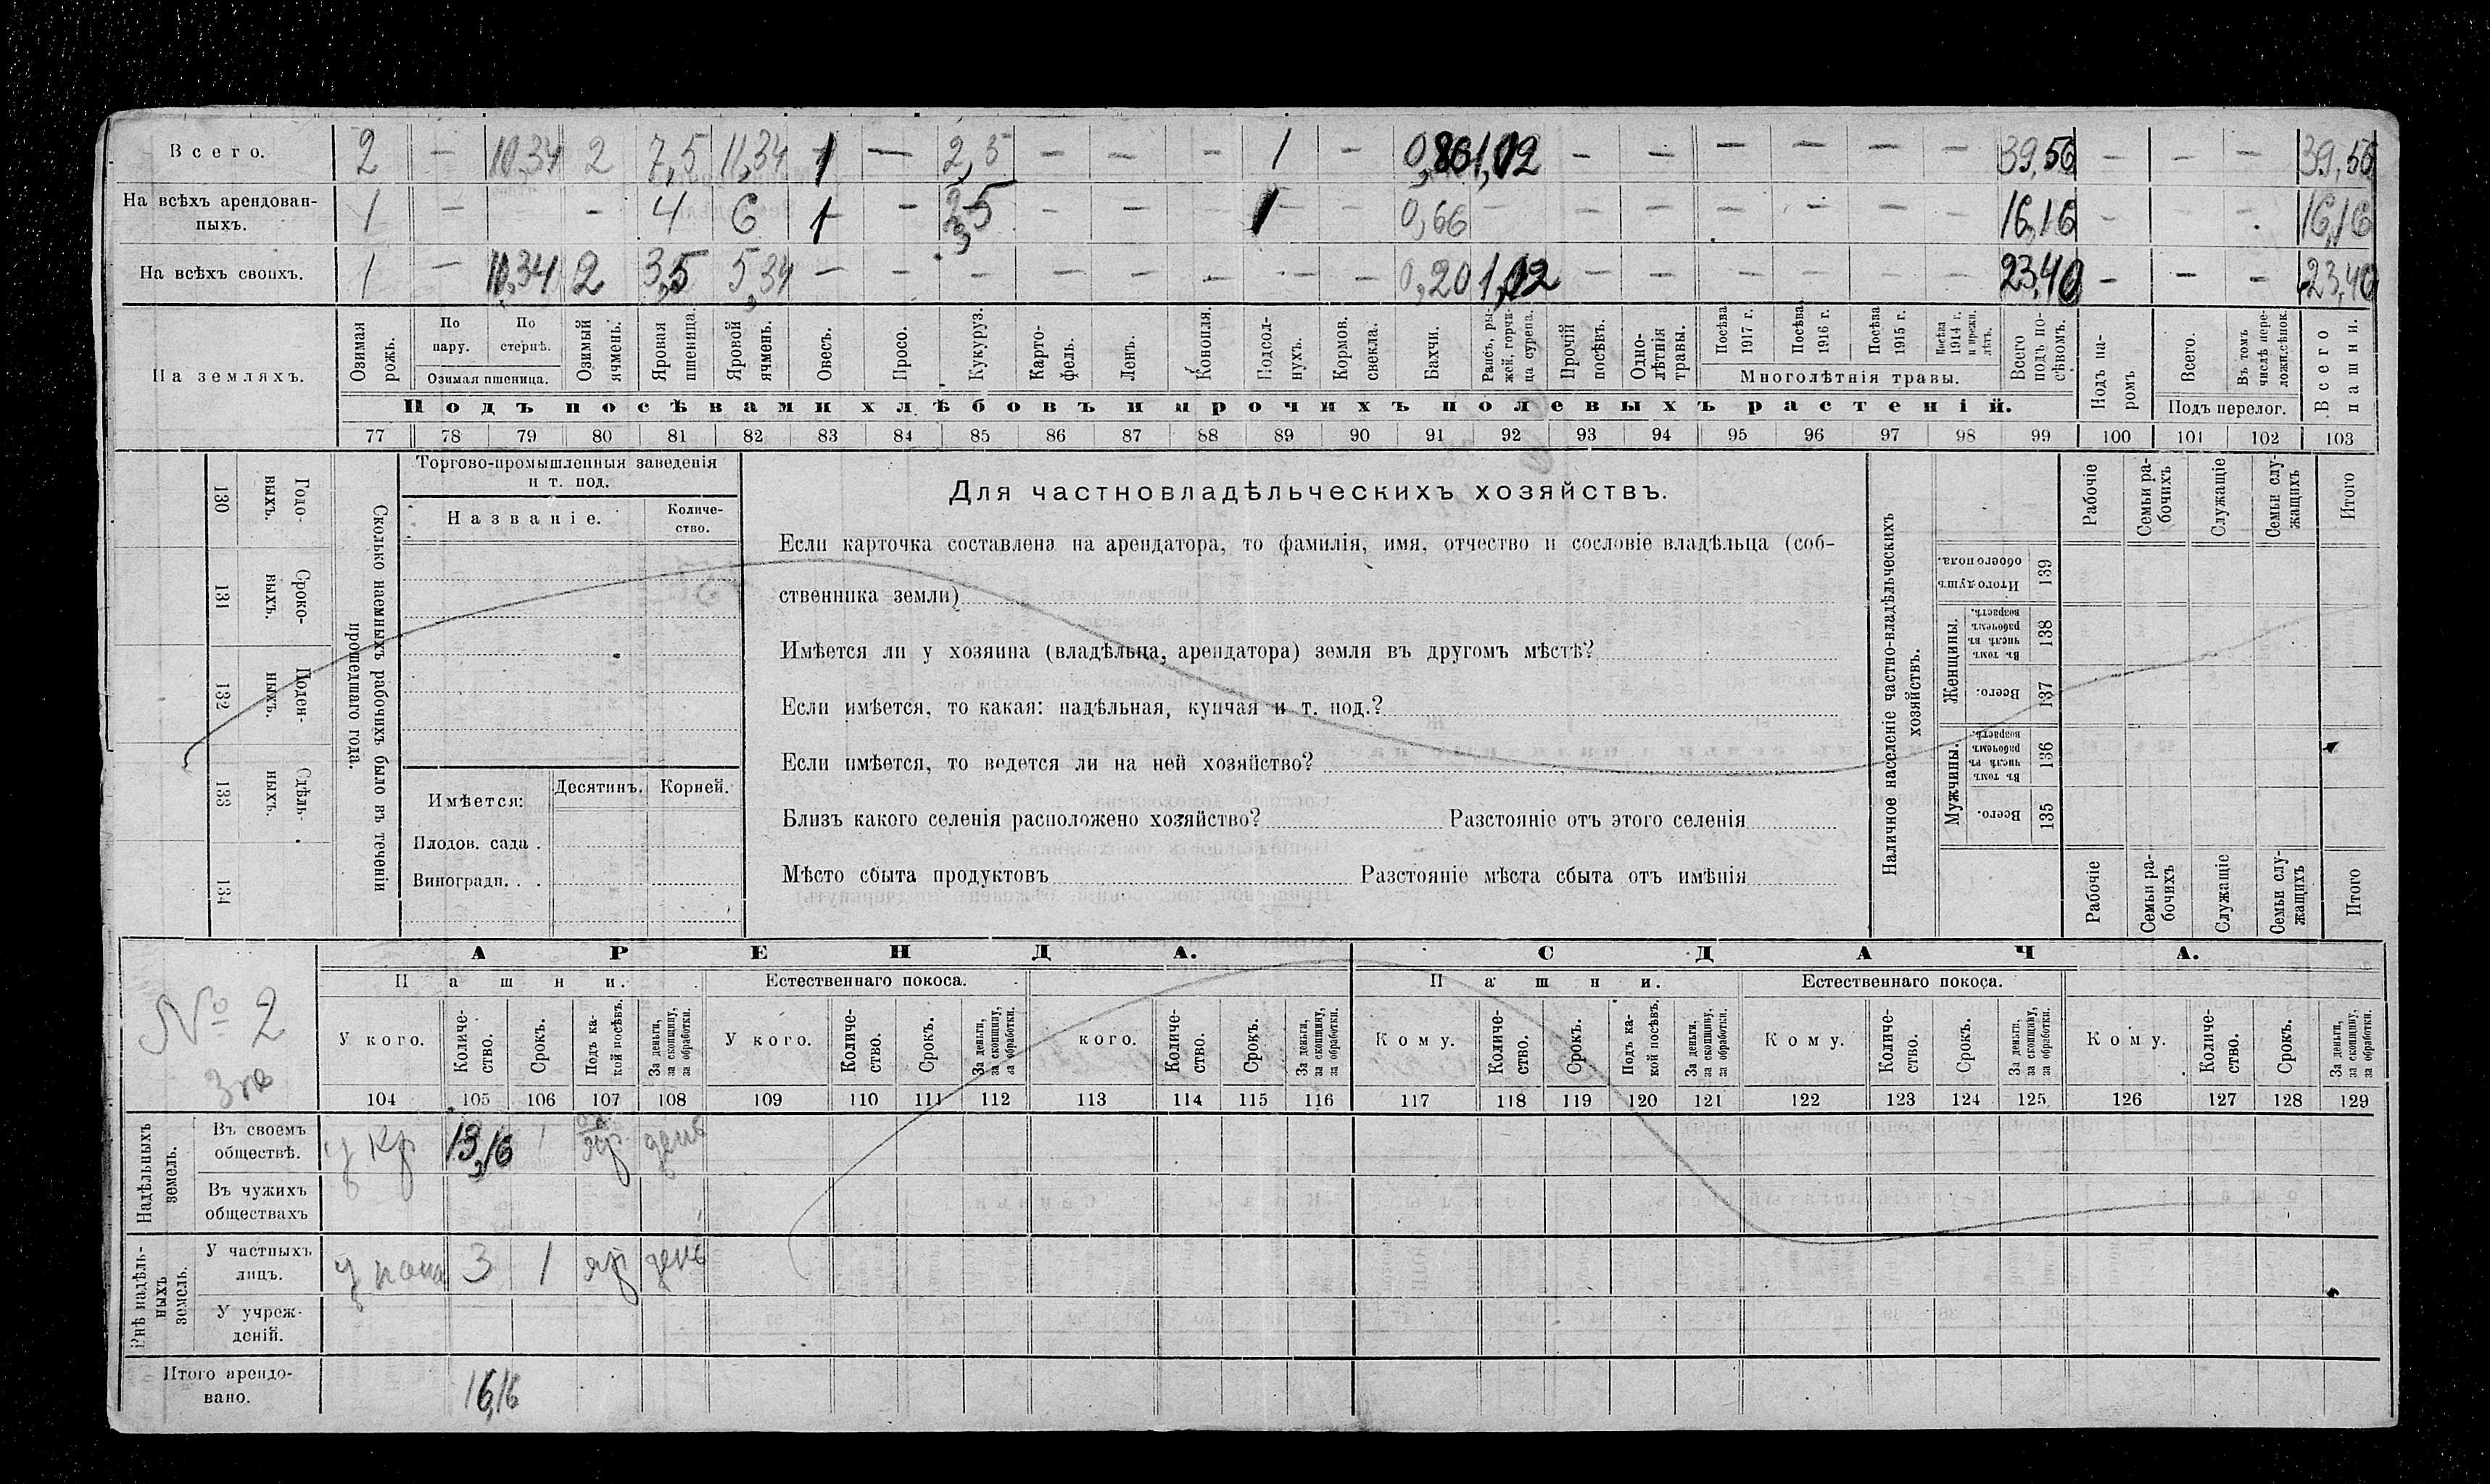 Всего. 2 — 10,34 2 7,5 11,34 1 — 2,5 — — — 1 — 0,86 1,02 — — — — — — 39,56 — — — 39,56
На всѣхъ арендован-
ныхъ. 1 — — 4 6 1 — 2,5 — — — 1 — 0,66 — — — — — — — 16,16 — — 16,16
На всѣхъ своихъ. 1 — 10,34 2 3,5 5,34 — — — — — — — — 0,20 1,02 — — — — — — 23,40 — — — 23,40
На земляхъ.
Озимая рожь.
По пару.
По стернѣ.
Озимая пшеница.
Озимый ячмень.
Яровая пшеница.
Яровой ячмень.
Овесъ.
Просо.
Кукуруз.
Карто-
фель.
Ленъ.
Конопля.
Подсол-
нухъ.
Кормов.
свекла.
Бахчи.
Рапсъ, ры-
жей, горчи-
ца сурепа.
Прочій
посѣвъ.
Одно-
лѣтнія
травы.
Посѣва
1917 г.
Посѣва
1916 г.
Посѣва
1915 г.
Посѣва
1914 г.
и прежн.
лѣтъ.
Многолѣтнія травы.
Всего
подъ по-
сѣвомъ.
Подъ па-
ромъ
Всего.
Въ томъ
числѣ пере-
ложн. сѣнок.
Подъ перелог.
Всего
пашни.
Подъ посѣвами хлѣбовъ и прочихъ полевыхъ растеній.
77 78 79 80 81 82 83 84 85 86 87 88 89 90 91 92 93 94 95 96 97 98 99 100 101 102 103
Сколько наемныхъ рабочихъ было въ теченіи
прошедшаго года.
Годо-
выхъ.
130
Сроко-
выхъ.
131
Поден-
ныхъ.
132
Сдѣль-
ныхъ.
133
134
Торгово-промышленныя заведенія
и т. под.
Названіе.
Количе-
ство.
Имѣется:
Десятинъ.
Корней.
Плодов. сада .
Виноградн. . .
Для частновладѣльческихъ хозяйствъ.
Если карточка составлена на арендатора, то фамилія, имя, отчество и сословіе владѣльца (соб-
ственника земли)
Имѣется ли у хозяина (владѣльца, арендатора) земля въ другомъ мѣстѣ?
Если имѣется, то какая: надѣльная, купчая и т. под.?
Если имѣется, то ведется ли на ней хозяйство?
Близъ какого селенія расположено хозяйство? Разстояніе отъ этого селенія
Мѣсто сбыта продуктовъ Разстояніе мѣста сбыта отъ имѣнія
Наличное населеніе частно-владѣльческихъ
хозяйствъ.
Рабочіе
Семьи ра-
бочихъ
Служащіе
Семьи слу-
жащихъ
Итого
Итого душъ
обоего пола.
139
Женщины.
Въ томъ
числѣ въ
рабочемъ
возрастѣ.
138
Всего.
137
Мужчины.
Въ томъ
числѣ въ
рабочемъ
возрастѣ.
136
Всего.
135
Рабочіе
Семьи ра-
бочихъ
Служащіе
Семьи слу-
жащихъ
Итого
№ 2
АРЕНДА. СДАЧА.
Пашни. Естественнаго покоса. Пашни. Естественнаго покоса.
У кого.
Количе-
ство.
Срокъ.
Подъ ка-
кой посѣвъ.
За деньги,
за скопщину,
за обработки.
У кого.
Количе-
ство.
Срокъ.
За деньги,
за скопщину,
за обработки.
кого.
Количе-
ство.
Срокъ.
За деньги,
за скопщину,
за обработки.
Кому.
Количе-
ство.
Срокъ.
Подъ ка-
кой посѣвъ.
За деньги,
за скопщину,
за обработки.
Кому.
Количе-
ство.
Срокъ.
За деньги,
за скопщину,
за обработки.
Кому.
Количе-
ство.
Срокъ.
За деньги,
за скопщину,
за обработки.
104 105 106 107 108 109 110 111 112 113 114 115 116 117 118 119 120 121 122 123 124 125 126 127 128 129
Надѣльныхъ
земель.
Въ своемъ
обществѣ. у кр 13,16 1 яр день
Въ чужихъ
обществахъ
Внѣ надѣль-
ныхъ
земель.
У частныхъ
лицъ. у 3 1 яр день
У учреж-
деній.
Итого арендо-
вано. 16,16